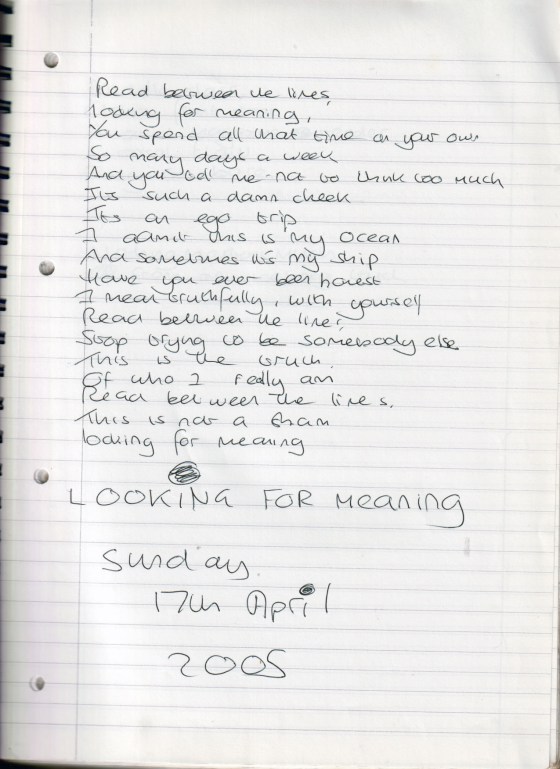 Read between the lines,
looking for meaning,
You spend all that time on your own
So many days a week
And you tell me not to think too much
Its such a damn cheek
Its an ego trip
I admit this is my ocean
And sometimes its my ship
Have you ever been honest
I mean truthfully, with yourself
Read between the lines,
Stop trying to be somebody else
This is the truth.
Of who I really am
Read between the lines.
This is not a sham
looking for meaning
LOOKING FOR MEANING
Sunday
17th April
2005